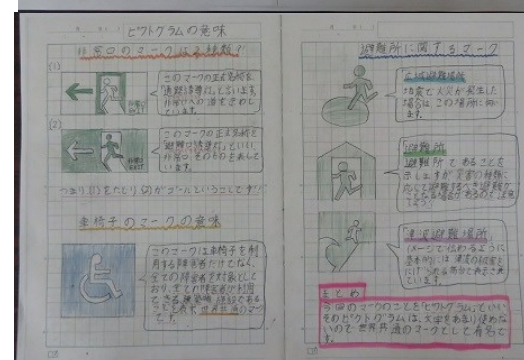 ピクトグラムの意味
非常口のマークは2種類?
(1)
このマークの正式名称を
「通路誘導灯」といいます。
非常口への道を示めし
ています。
(2)
このマークの正式名称を
「避難口誘導灯」といい、
非常口そのものを表して
います。
つまり(1)をたどり(2)がゴールということです!
車椅子のマークの意味
このマークは車椅子を利
用する障害者だけでなく、
全ての障害者を対象として
おり、全ての障害者が利用
できる建築物、施設である
ことを表す世界共通のマーク
です。
避難所に関するマーク
「広域避難場所」
地震で火災が発生した
場合は、この場所に向い
ます。
「避難所」
避難所であることを
示しますが災害の種類に
応じて避難するべき避難所が
「津波避難場所」
イメージで伝わるように
まとめ
今回のマークのことを「ピクトグラム」といい
そのピクトグラムは、文字をあまり使わな
いので世界共通のマークとして有名で
す。